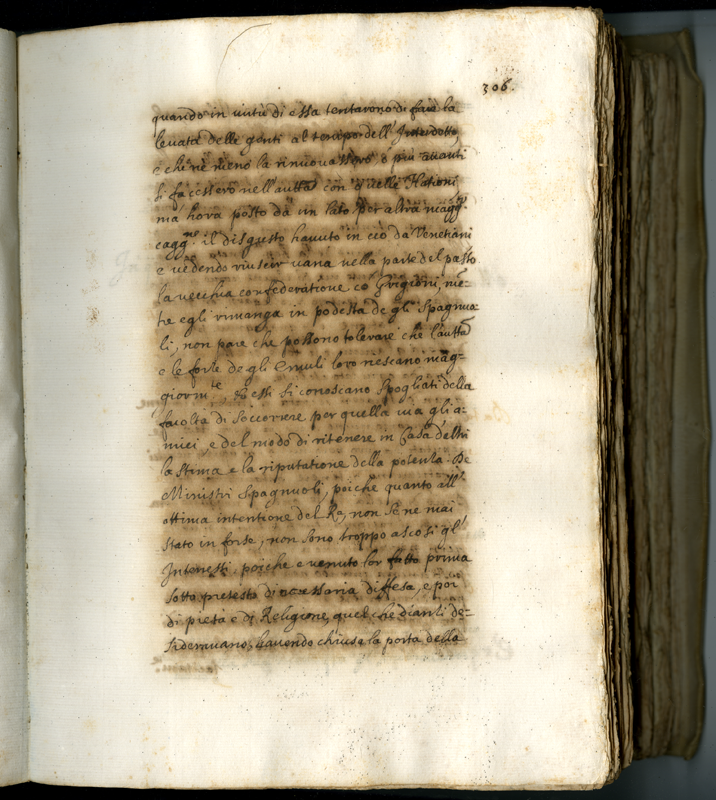 306.
quando in virtù di essa tentarono di fare la
levata delle genti al tempo dell' Interdetto,
e che ne meno la rinuovassero ò più avanti
si facessero nell' autta con quelle Nationi,
mà hora posto da un lato per altra magg.r
cagg.ne il disgusto havuto in ciò da Venetiani
e vedendo riuscir vana nella parte del passo
la vecchia confederatione cò Grigioni, mē-
tre egli rimanga in podestà degli Spagnuo-
li, non pare che possono tolerare che l'autta
e le forze degli Emuli loro riescano mag-
giorm.te, ed essi si conoscano spogliati della
facoltà di soccorrere per quella via gli a-
mici, e del modo di ritenere in Casa d'altri
la stima e la riputatione della potenza. De
Ministri Spagnuoli, poiche quanto all'
ottima intentione del Re, non se ne mai
stato in forse, non sono troppo ascosi gl'
Interessi. poiche e venuto lor fatto prima
sotto pretesto di necessaria diffesa, e poi
di pietà e di Religione, quel che dianzi de-
sideravano, havendo chiusa la porta della